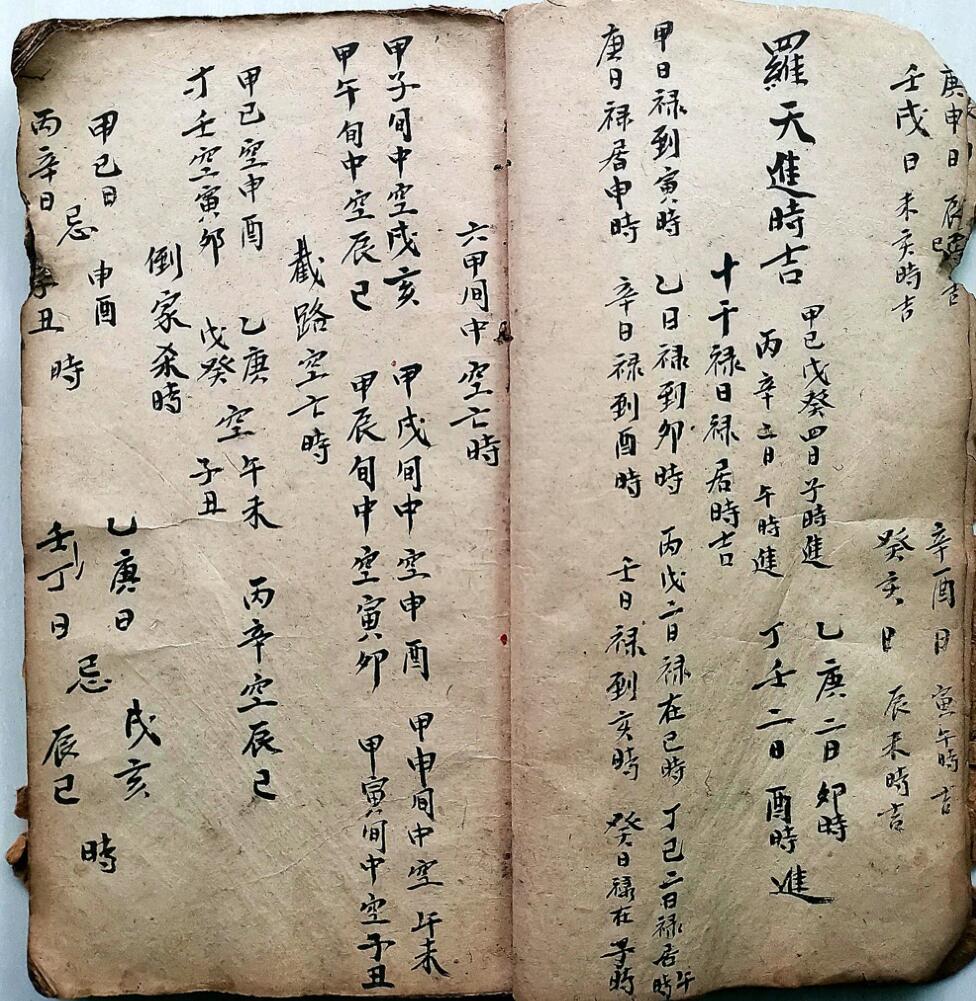 庚申日 辰巳 吉 辛酉日 寅午時吉
壬戌日 未亥時吉 癸亥日 辰未時吉
羅天進時吉 甲己戊癸四日子時進 乙庚二日卯時
丙辛二日午時進 丁壬二日酉時進
十干禄日禄居時吉
甲日禄到寅時 乙日禄到卯時 丙戊二日禄在巳時 丁己二日禄居午時
庚日禄居申時 辛日禄到酉時 壬日禄到亥時 癸日禄在子時
六甲旬中空亡時
甲子旬中空戌亥 甲戌旬中空申酉 甲申旬中空午未
甲午旬中空辰巳 甲辰旬中空寅卯 甲寅旬中空子丑
截路空亡時
甲己空申酉 乙庚空午未 丙辛空辰巳
丁壬空寅卯 戊癸 子丑
倒家杀時
甲己日忌申酉 乙庚日忌戌亥
丙辛日 丑時 壬丁日 辰巳時